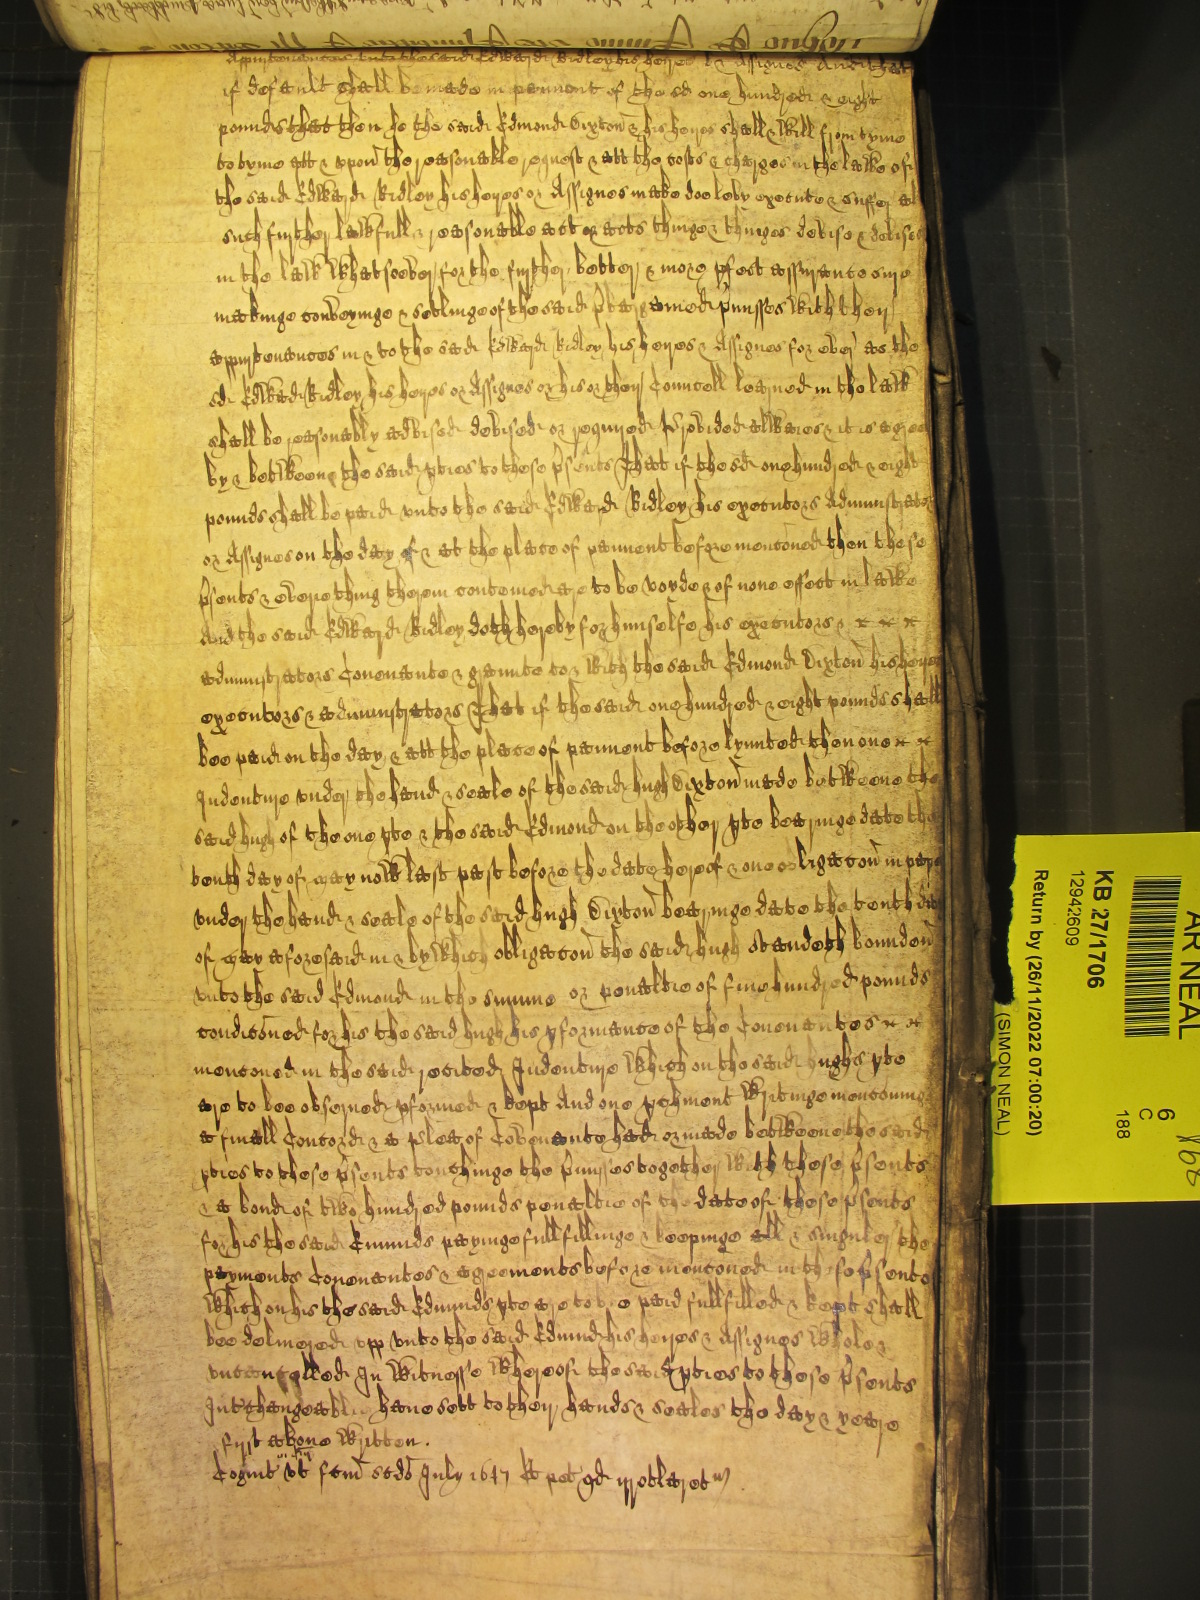 Appurtenances unto the said Edward Ridley his heyres & Assignes And that
if default shall be made in paiment of the sd one hundred & eight
pounds that then he the said Edmond Dixton & his heyres shall & will from tyme
to tyme att & vpon the reasonable request & att the costs & charges in the lawe of
the said Edward Ridley his heyres or Assignes make doe leby execute & suffer all
such further lawfull & reasonable act or acts thinge & thinges debise & debises
in the law whatsoeber for the further better & more pfect assurance sure
makinge conbeyinge & setlinge of the said bargained pmisses with their
appurtenances in & to the said Edward Ridley his heyres & Assignes for eber as the
sd Edward Ridley his heyres or Assignes or his or their Councell learned in the law
shall be reasonably adbised debised or required Probided allwaies & it is agreed
by & betweene the said pties to these psents That if the sd one hundred & eight
pounds shall be paid vnto the said Edward Ridley his executors Administrators
or Assignes on the day of & att the place of paiment before mentoned then these
psents & eberie thing therein conteined are to be voyde & of none effect in lawe
And the said Edward Ridley doth hereby for himselfe his executors & x x x
administrators Couenante & graunte to & with the said Edmond Dixton his heyres
executors & administrators That if the said one hundred & eight pounds shall
bee paid on the day & att the place of paiment before lymited then one x x
Indenture vnder the hand & seale of the said hugh Dixton made betweene the
said hugh of the one pte & the said Edmond on the other pte bearinge date the
tenth day of may now last past before the date hereof & one obligacon in pape
vnder the hand & seale of the said hugh Dixton bearinge date the tenth day
of may aforesaid in & by which obligacon the said hugh standeth bounden
vnto the said Edmond in the summe or penaltie of fiue hundred pounds
conditoned for his the said hugh his pformance of the Couenantes x x
mentoned in the said recited Indenture which on the said hughs pte
are to bee obserued pformed & kept And one pchment writinge mentouninge
a finall Concord & a plea of Cobenante had or made betweene the said
pties to these psents touchinge the pmisses together with these psents
& a bond of two hundred pounds penaltie of the date of these psents
for his the said Emunds payinge fullfillinge & keepinge all & singuler the
payments Couenantes & agreements before mentoned in these psents
which on his the said Edmunds pte are to bee paid fullfilled & kept shall
bee deliuered vpp vnto the said Edmund his heyres & Assignes whole &
vncancelled In Witnesse whereof the said pties to these psents
Interchangeablie haue sett their hands & seales the day & yeare
first aboue written.
Cognit vt fcm scdo July 1647 Et pet qd irrotlaret
KB 27/1706
12942609
Return by (26/11/2022 07:00:20)
(SIMON NEAL)
AR NEAL
6
C
188